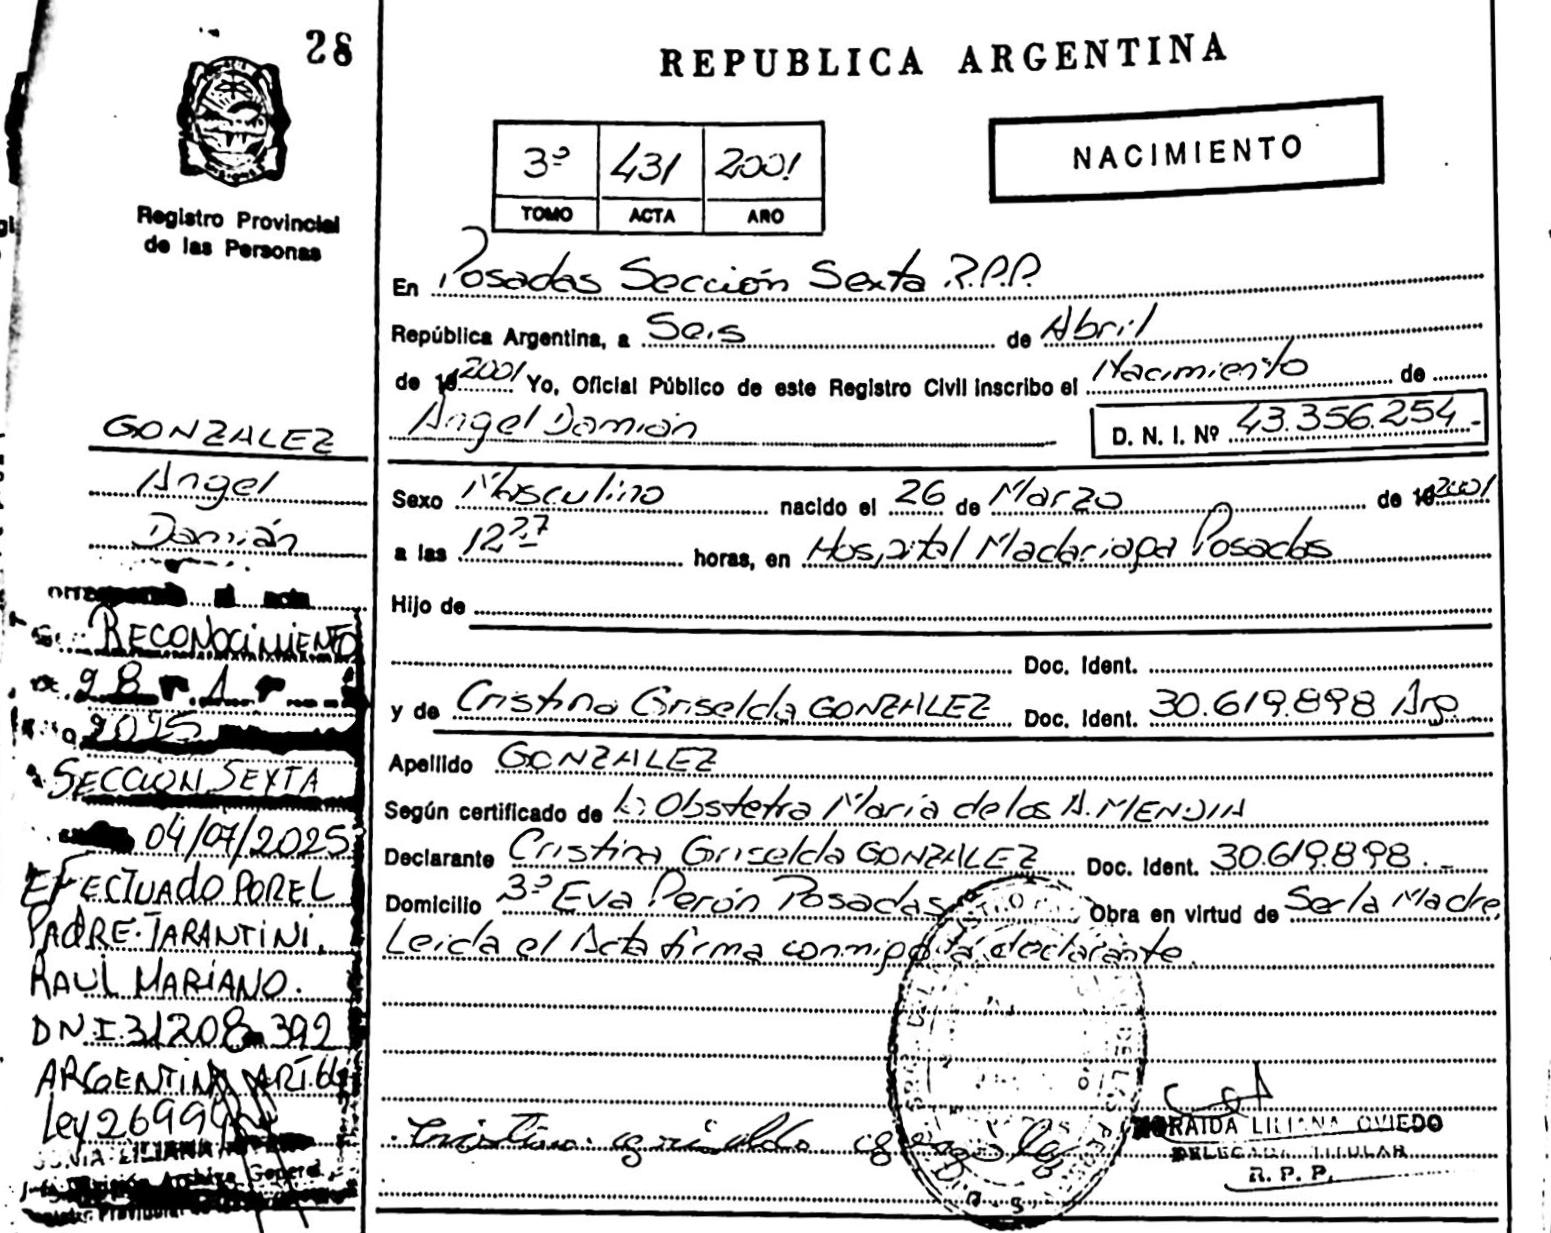 28
REPUBLICA ARGENTINA
NACIMIENTO
3º 431 2001
TOMO ACTA AÑO
Registro Provincial
de las Personas
En Posadas Sección Sexta R.P.P.
República Argentina, a Seis de Abril
de 19 2001 Yo, Oficial Público de este Registro Civil inscribo el Nacimiento de
Angel Damián D. N. I. Nº 43.356.254.-
Sexo Masculino nacido el 26 de Marzo de 19 2001
a las 12 27 horas, en Hospital Madariaga Posadas
Hijo de
Doc. Ident.
y de Cristina Griselda GONZALEZ Doc. Ident. 30.619.898 Arg.
Apellido GONZALEZ
Según certificado de Obstetra María de los A. MENDIA
Declarante Cristina Griselda GONZALEZ Doc. Ident. 30.619.898.-
Domicilio 3º Eva Perón Posadas Obra en virtud de Ser la Madre
Leida el Acta firma conmigo la declarante.
Cristina griselda
ZORAIDA LILIANA OVIEDO
DELEGADA TITULAR
R. P. P.
GONZALEZ
Angel
Damián
acta
RECONOCIMIENTO
28 1
2025
SECCION SEXTA
04/07/2025
EFECTUADO POR EL
PADRE: TARANTINI,
RAUL MARIANO.
DN.I.31208.392
ARGENTINA ART.
Ley 26994
SONIA LILIANA
Archivo General
Registro Provincial de las